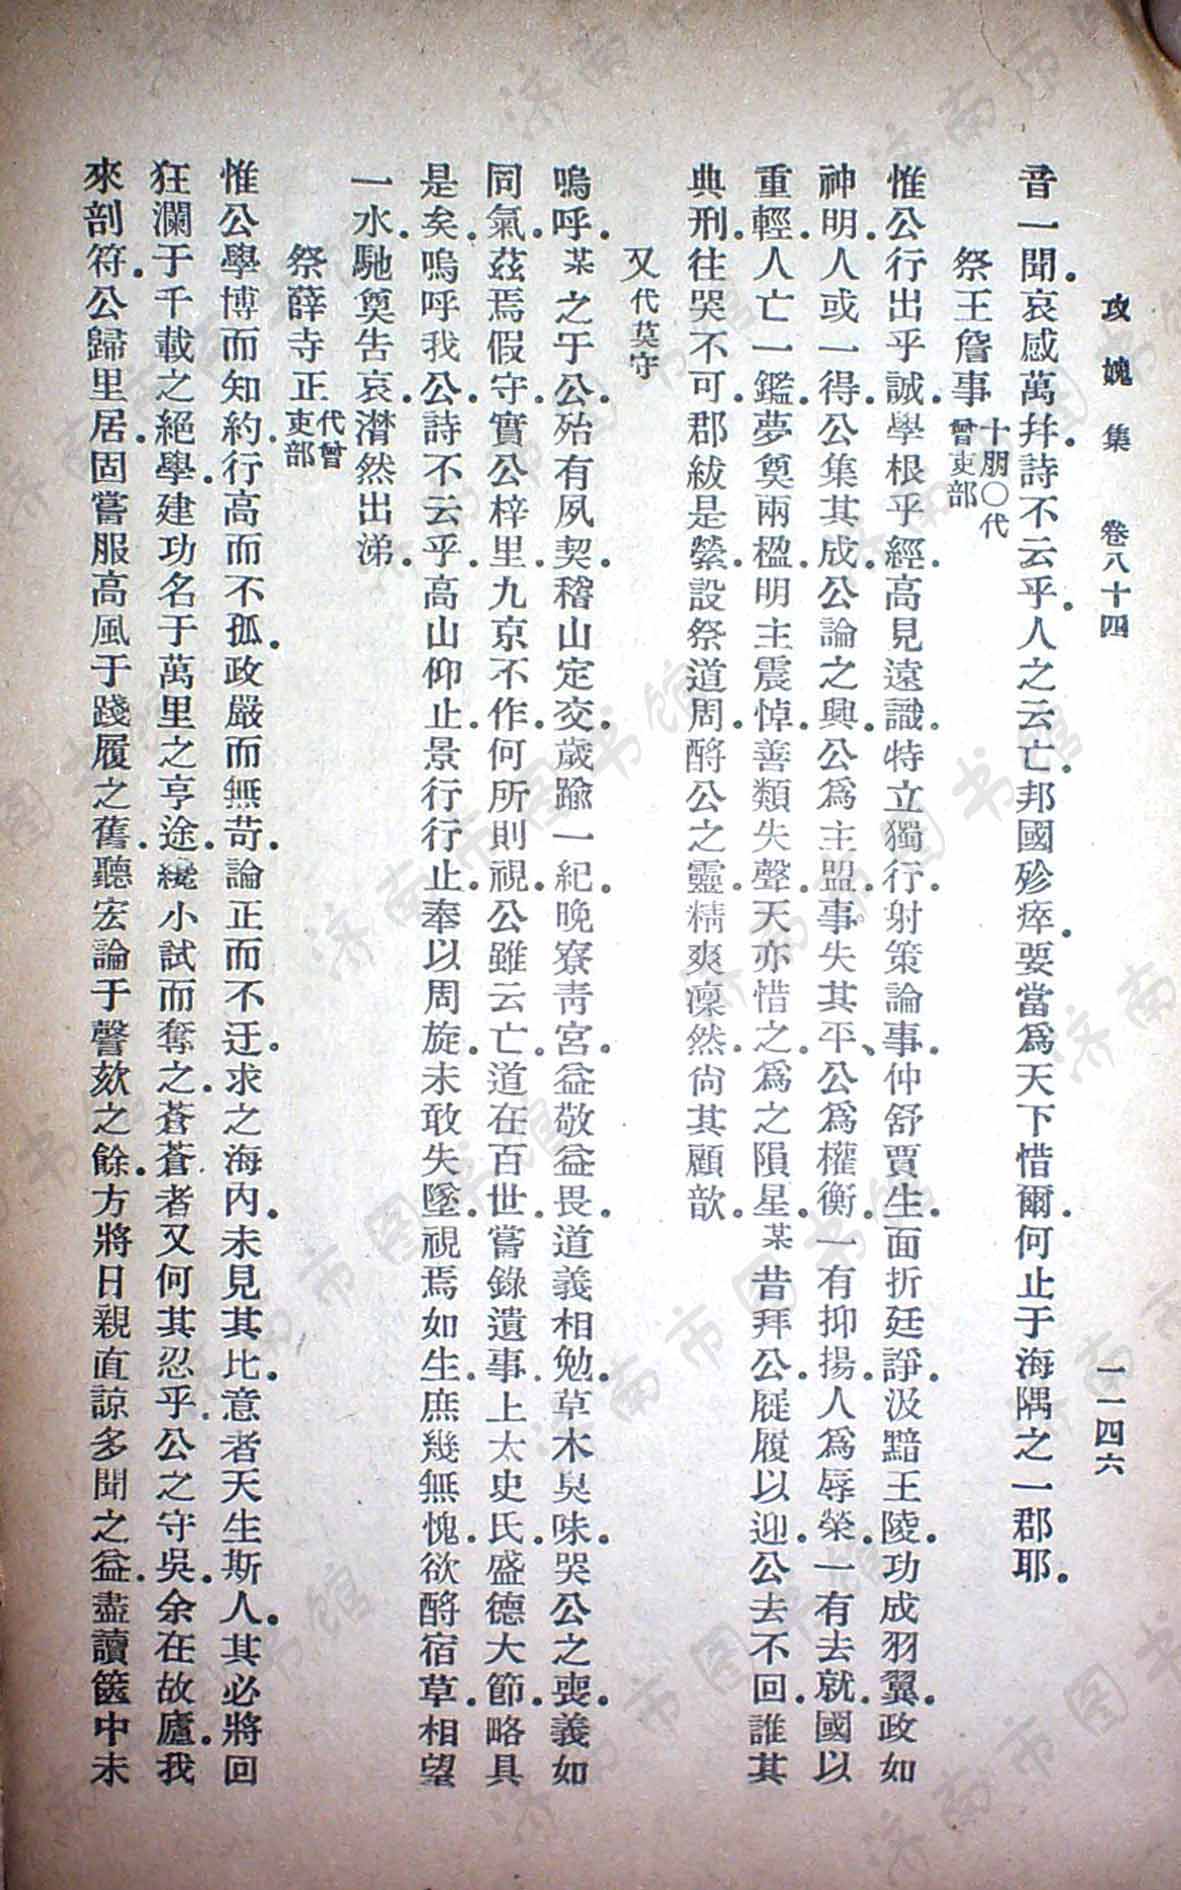 攻媿集 卷八十四 一一四六
音一聞。哀感萬幷。詩不云乎。人之云亡。邦國殄瘁。要當爲天下惜爾。何止于海隅之一郡耶。
祭王詹事十朋○代曾吏部
惟公行出乎誠。學根乎經。高見遠識。特立獨行。射策論事。仲舒賈生。面折廷諍。汲黯王陵。功成羽翼。政如
神明。人或一得。公集其成。公論之興。公爲主盟。事失其平、公爲權衡。一有抑揚。人爲辱榮。一有去就。國以
重輕。人亡一鑑。夢奠兩楹。明主震悼。善類失聲。天亦惜之。爲之隕星。某昔拜公。屣履以迎。公去不回。誰其
典刑。往哭不可。郡紱是縈。設祭道周。酹公之靈。精爽凜然。尙其顧歆。
又代莫守
嗚呼。某之于公。殆有夙契。稽山定交。歲踰一紀。晚寮靑宮。益敬益畏。道義相勉。草木臭味。哭公之喪。義如
同氣。茲焉假守。實公梓里。九京不作。何所則視。公雖云亡。道在百世。嘗錄遺事。上太史氏。盛德大節。略具
是矣。嗚呼我公。詩不云乎。高山仰止。景行行止。奉以周旋。未敢失墜。視焉如生。庶幾無愧。欲酹宿草。相望
一水。馳奠吿哀。潸然出涕。
祭薛寺正代曾吏部
惟公學博而知約。行高而不孤。政嚴而無苛。論正而不迂。求之海內。未見其比。意者天生斯人。其必將回
狂瀾于千載之絕學。建功名于萬里之亨途。纔小試而奪之。蒼蒼者又何其忍乎。公之守吳。余在故廬。我
來剖符。公歸里居。固嘗服高風于踐履之舊。聽宏論于謦欬之餘。方將日親直諒多聞之益。盡讀篋中未